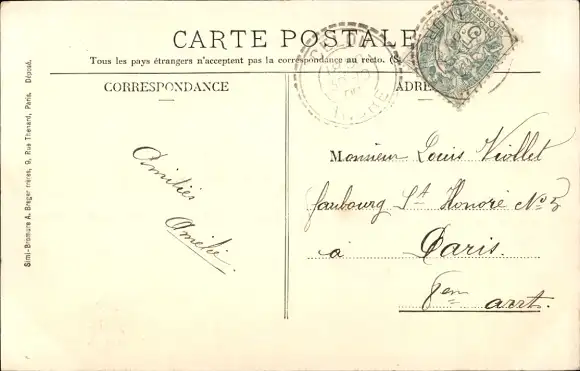 CARTE POSTALE
Tous les pays étrangers n'acceptent pas la correspondance au recto. (S
CORRESPONDANCE
ADRE
Simi-Bromure A. Breger frères, 9, Rue Thenard, Paris. Déposé.
Amitiés
Amélie.
Monsieur Louis Viollet
faubourg St Honoré No 5
à Paris.
8em arrt.